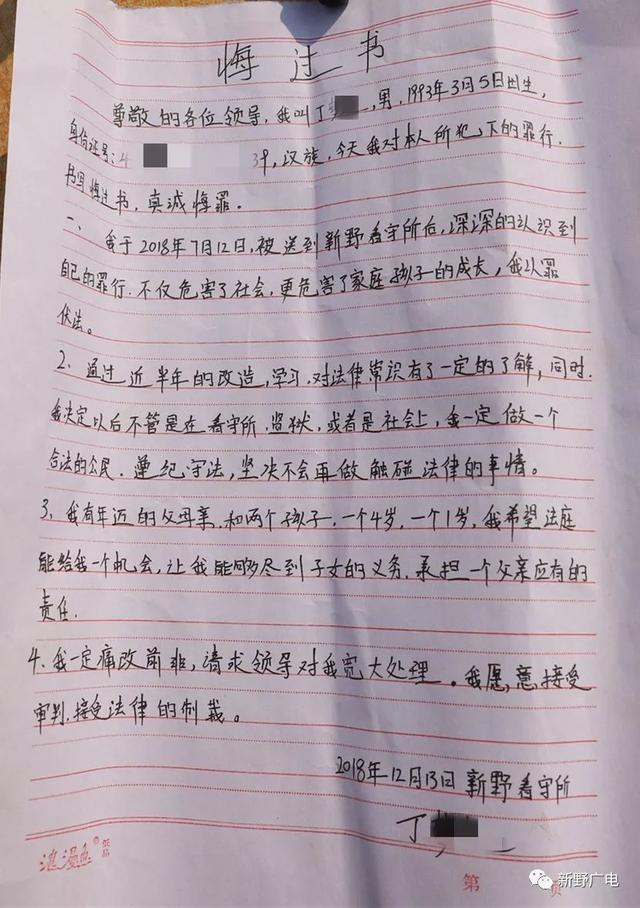 悔过书
尊敬的各位领导,我叫丁,男,1993年3月5日出生,
身份证号:4 39,汉族,今天我对本人所犯下的罪行.
书写悔过书,真诚悔罪。
一、我于2018年7月12日,被送到新野看守所后,深深的认识到
自己的罪行.不仅危害了社会,更危害了家庭孩子的成长,我认罪
伏法。
2、通过近半年的改造,学习,对法律常识有了一定的了解,同时.
我决定以后不管是在看守所,监狱,或者是社会上,我一定做一个
合法的公民.遵纪守法,坚决不会再做触碰法律的事情。
3、我有年迈的父母亲.和两个孩子,一个4岁,一个1岁,我希望法庭
能给我一个机会,让我能够尽到子女的义务.承担一个父亲应有的
责任.
4、我一定痛改前非,请求领导对我宽大处理。我愿意接受
审判.接受法律的制裁。
2018年12月13日 新野看守所
丁
浪漫鱼® 纸品
第 页
新野广电